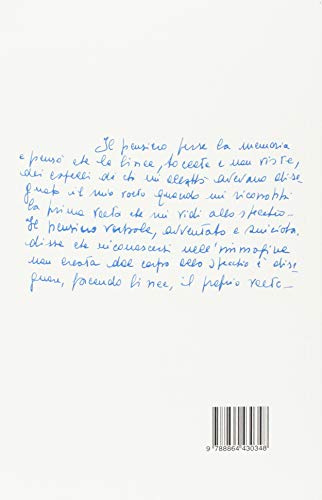 Il pensiero perse la memoria
e pensò che le linee, toccate e non viste,
dei capelli di chi mi allattò avevano dise
gnato il mio volto quando mi
la prima volta che mi vidi allo specchio -
Il pensiero verbale, avventato e
disse che riconoscersi nell'immagine
non creata dal corpo allo specchio è dise
gnare, facendo linee, il proprio volto -
9 788864 430348